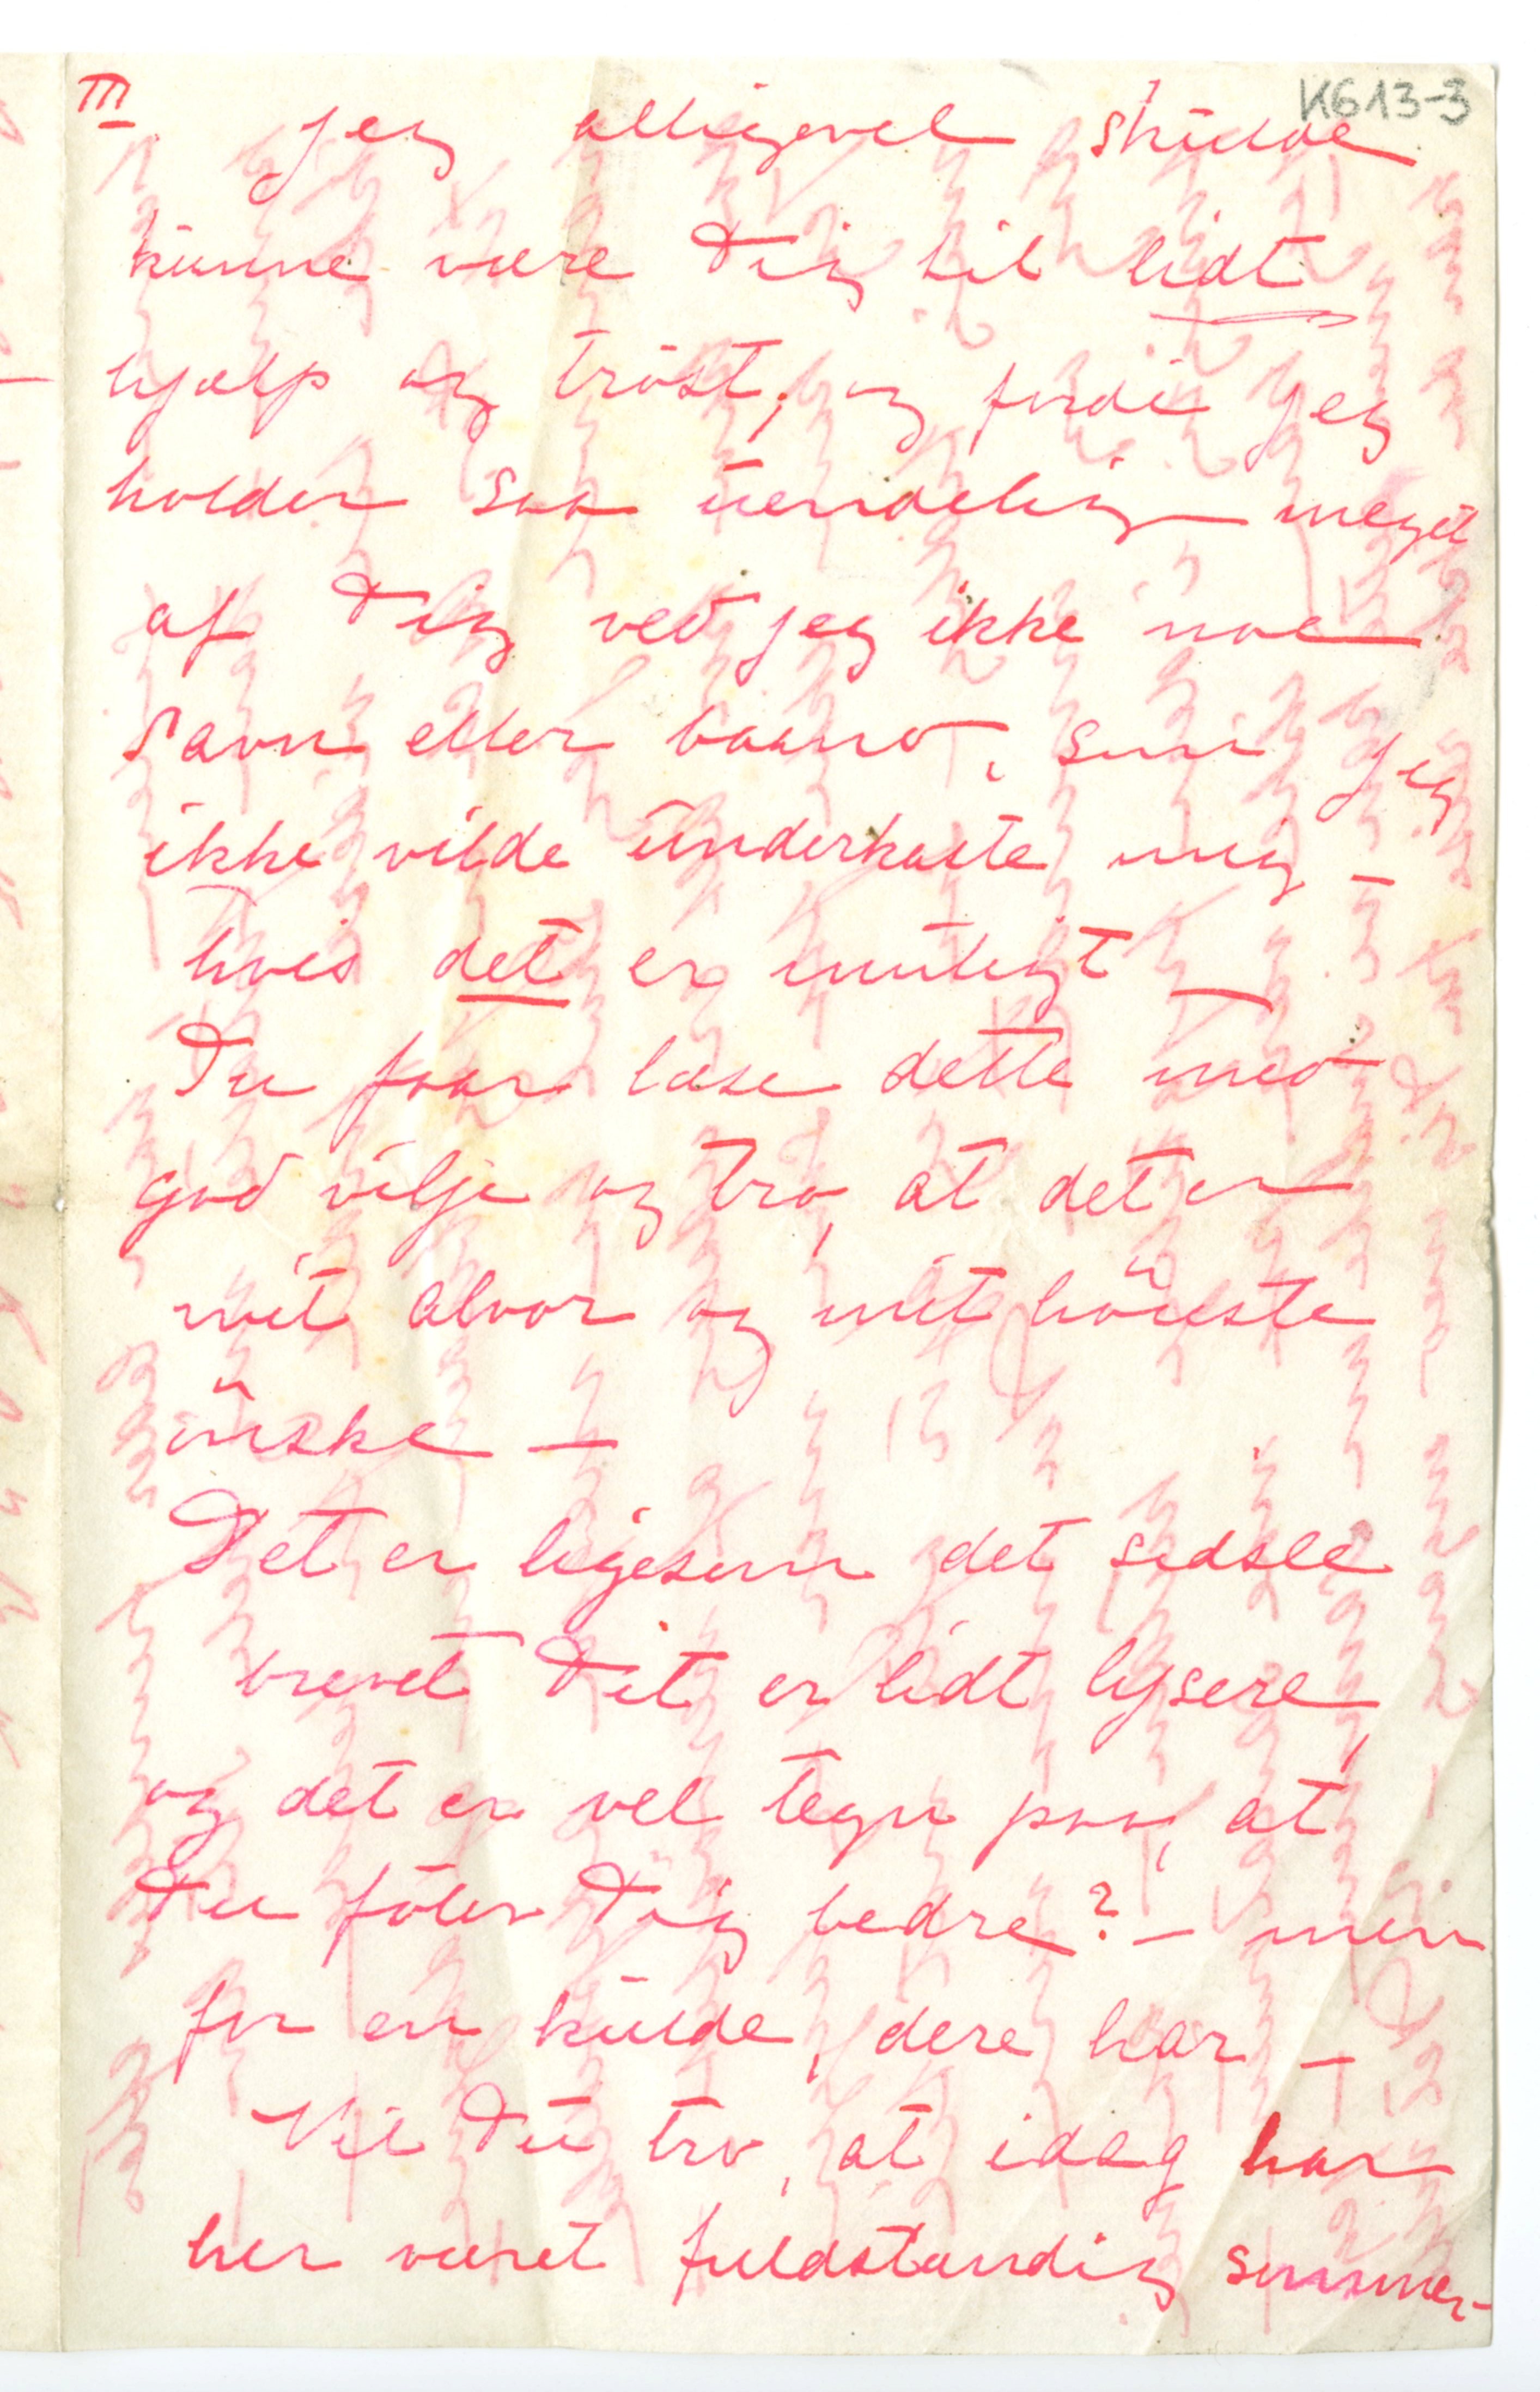 III
K613-3
jeg alligevel skulde
kunne være Dig til lidt
hjælp og tröst, og fordi jeg
holder saa uendelig meget
af Dig ved jeg ikke noe
savn eller baand, som jeg
ikke vilde underkaste mig –
hvis det er muligt –
Du faar læse dette med
god vilje og tro, at det er
mit alvor og mit höieste
önske –
Det er ligesom det sidste
brevet Dit er lidt lysere,
og det er vel tegn paa, at
Du föler Dig bedre? – men
for en kulde, dere har –
Vil Du tro, at idag har
her været fuldstændig sommer-